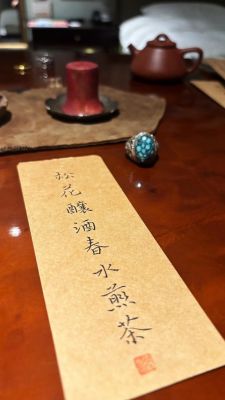 松花釀酒春水煎茶